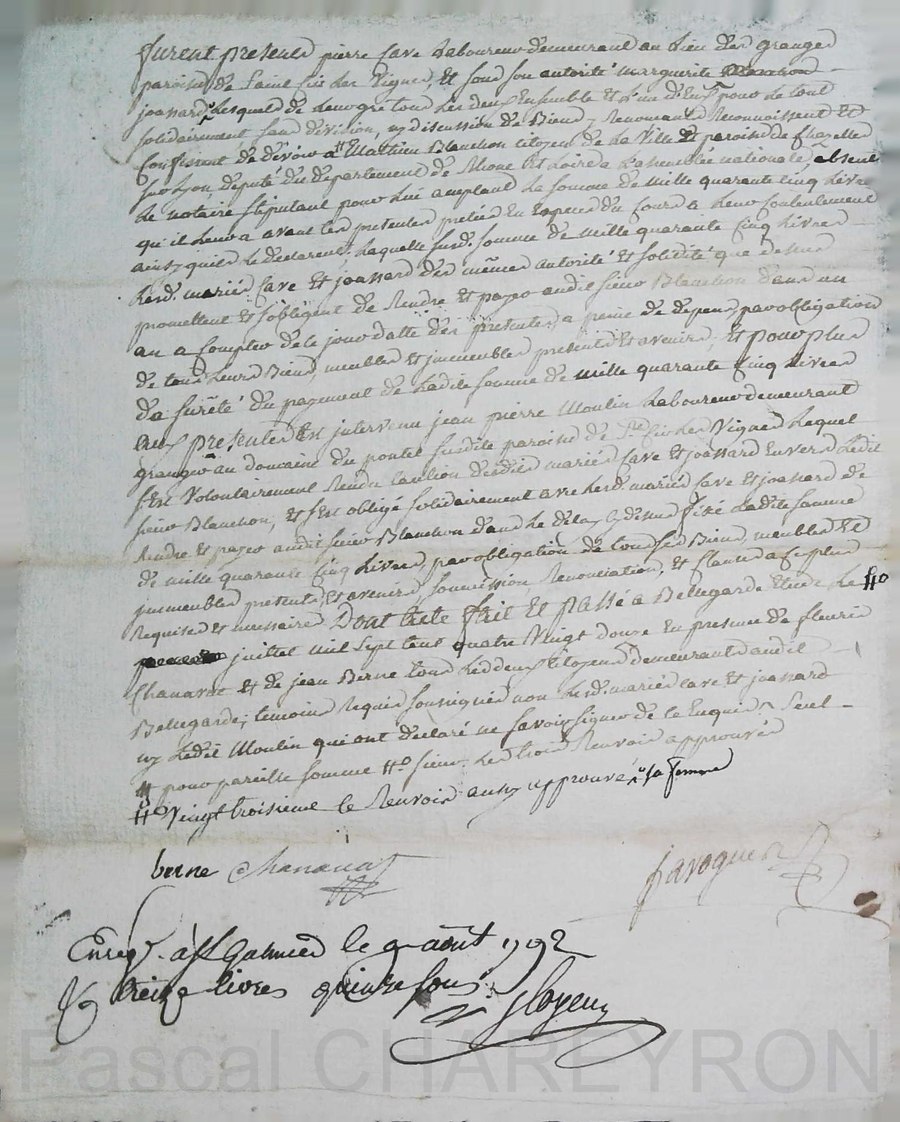 furent presents pierre Cave Laboureur demeurant au lieu des granges
paroisse de Saint Cir les Vignes, et sous son autorité marguerite
joassard, lesquels de leur gré tous les deux Ensemble et l'un d'eux pour le tout
solidairement sans division, ny discussion de Biens, Renoncant Reconnoissent et
Confessent de devoir a Matthieu Blanchon citoyen de la Ville et paroisse de Chazelle
sur Lyon député du departement de Rhone et Loire a l'assemblée nationale, absent
le notaire stipulant pour lui acceptant la somme de mille quarante cinq livres
qu'il leur a avant les presentes pretée En Especes du Cours a leur Contentement
ainsy qu'ils le declarent, laquelle susd. somme de mille quarante cinq livres
lesd. mariés Cave et joassard des mêmes autorité et solidité que dessus
promettent et s'obligent de Rendre et payer audit sieur Blanchon dans un
an a Compter de ce jour datte des presentes, a peine de depens, par obligation
de tous leurs Biens, meubles et immeubles presents et avenirs. et pour plus
de sureté du payement de ladite somme de mille quarante cinq livres
aux presentes Est intervenu jean pierre Moulin Laboureur demeurant
granger au domaine du poulet susdite paroisse de St Cir les Vignes lequel
s'est Volontairement Rendu Caution desdits mariés Cave et joassard Envers ledit
sieur Blanchon, et s'est obligé solidairement avec lesd. mariés Cave et joassard de
Rendre et payer audit sieur Blanchon dans le delay cy dessus fixé ladite somme
de mille quarante Cinq livres, par obligation de tous ses Biens, meubles et
immeubles presents et avenirs, soumission, Renonciation, et Clauses a ce plus
Requises et necessaires Dont acte fait et passé a Bellegarde Etude le #o
juillet mil sept cent quatre Vingt douze En presence de fleuris
Chanavat et de jean Berne tous les deux Citoyens demeurant audit
Bellegarde, temoins Requis soussignés non lesd. mariés Cave et joassard
ny ledit Moulin qui ont declaré ne savoir signer de ce Enquis Seul
# pour pareille somme #o sieur. Les trois Renvois approuvés
#o Vingt troisieme le Renvoi aussy approuvé sa femme
berne Chanavat
javogues
Enreg. à St Galmier le 2 août 1792
treize livres quinze sous